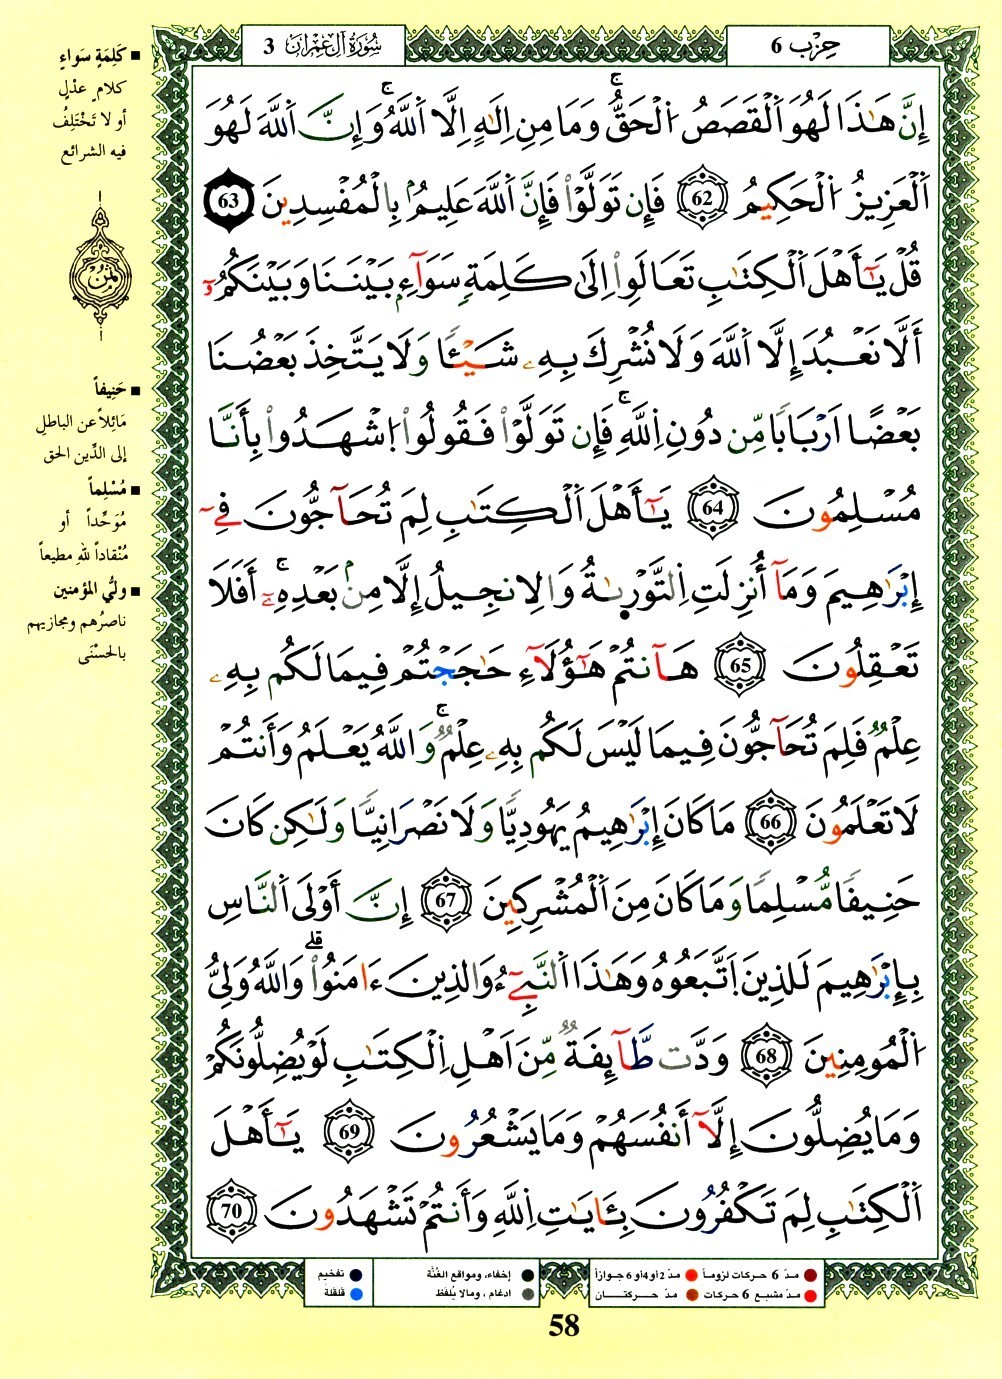 سُورَةُ آلِ عِمْرَان 3
حِزْب 6
إِنَّ هَٰذَا لَهُوَ اَ۬لْقَصَصُ اُ۬لْحَقُّۖ وَمَا مِنِ اِلَٰهٍ اِلَّا اَ۬للَّهُۖ وَإِنَّ اَ۬للَّهَ لَهُوَ
اَ۬لْعَزِيزُ اُ۬لْحَكِيمُ 62 فَإِن تَوَلَّوْاْ فَإِنَّ اَ۬للَّهَ عَلِيمُۢ بِالْمُفْسِدِينَ 63
قُلْ يَٰٓأَهْلَ اَ۬لْكِتَٰبِ تَعَالَوِاْ اِلَىٰ كَلِمَةٖ سَوَآءِۢ بَيْنَنَا وَبَيْنَكُمُۥٓ
أَلَّا نَعْبُدَ إِلَّا اَ۬للَّهَ وَلَا نُشْرِكَ بِهِۦ شَيْـٔٗا وَلَا يَتَّخِذَ بَعْضُنَا
بَعْضًا اَرْبَابٗا مِّن دُونِ اِ۬للَّهِۖ فَإِن تَوَلَّوْاْ فَقُولُواْ اُ۪شْهَدُواْ بِأَنَّا
مُسْلِمُونَ 64 يَٰٓأَهْلَ اَ۬لْكِتَٰبِ لِمَ تُحَآجُّونَ فِےٓ
إِبْرَٰهِيمَ وَمَآ أُنزِلَتِ اِ۬لتَّوْر۪ىٰةُ وَالِانجِيلُ إِلَّا مِنۢ بَعْدِهِۦٓۖ أَفَلَا
تَعْقِلُونَ 65 هَآنتُمْ هَٰٓؤُلَآءِ حَٰجَجْتُمْ فِيمَا لَكُم بِهِۦ
عِلْمٞ فَلِمَ تُحَآجُّونَ فِيمَا لَيْسَ لَكُم بِهِۦ عِلْمٞۖ وَاللَّهُ يَعْلَمُ وَأَنتُمْ
لَا تَعْلَمُونَ 66 مَا كَانَ إِبْرَٰهِيمُ يَهُودِيّٗا وَلَا نَصْرَانِيّٗا وَلَٰكِن كَانَ
حَنِيفٗا مُّسْلِمٗا وَمَا كَانَ مِنَ اَ۬لْمُشْرِكِينَ 67 إِنَّ أَوْلَى اَ۬لنَّاسِ
بِإِبْرَٰهِيمَ لَلذِينَ اَ۪تَّبَعُوهُ وَهَٰذَا اَ۬لنَّبِےٓءُ وَالذِينَ ءَامَنُواْۗ وَاللَّهُ وَلِيُّ
اُ۬لْمُومِنِينَ 68 وَدَّت طَّآئِفَةٞ مِّنَ اَهْلِ اِ۬لْكِتَٰبِ لَوْ يُضِلُّونَكُمْ
وَمَا يُضِلُّونَ إِلَّآ أَنفُسَهُمْ وَمَا يَشْعُرُونَ 69 يَٰٓأَهْلَ
اَ۬لْكِتَٰبِ لِمَ تَكْفُرُونَ بِـَٔايَٰتِ اِ۬للَّهِ وَأَنتُمْ تَشْهَدُونَ 70
كَلِمَةٍ سَوَاءٍ
كلامٍ عدْلٍ
أو لا تَخْتَلِفُ
فيه الشرائع
ثُمُن
حَنِيفاً
مَائِلاً عن الباطلِ
إلى الدِّين الحق
مُسْلِماً
مُوَحِّداً أو
مُنْقاداً للهِ مطيعاً
وليُّ المؤمنين
ناصرُهم ومجازيهم
بالحسْنَى
مدّ 6 حركات لزوماً مدّ 2 أو 4 أو 6 جوازاً
مدّ مشبع 6 حركات مدّ حركتان
إخفاء، ومواقع الغُنَّة
ادغام ، ومالا يُلفظ
تفخيم
قلقلة
58